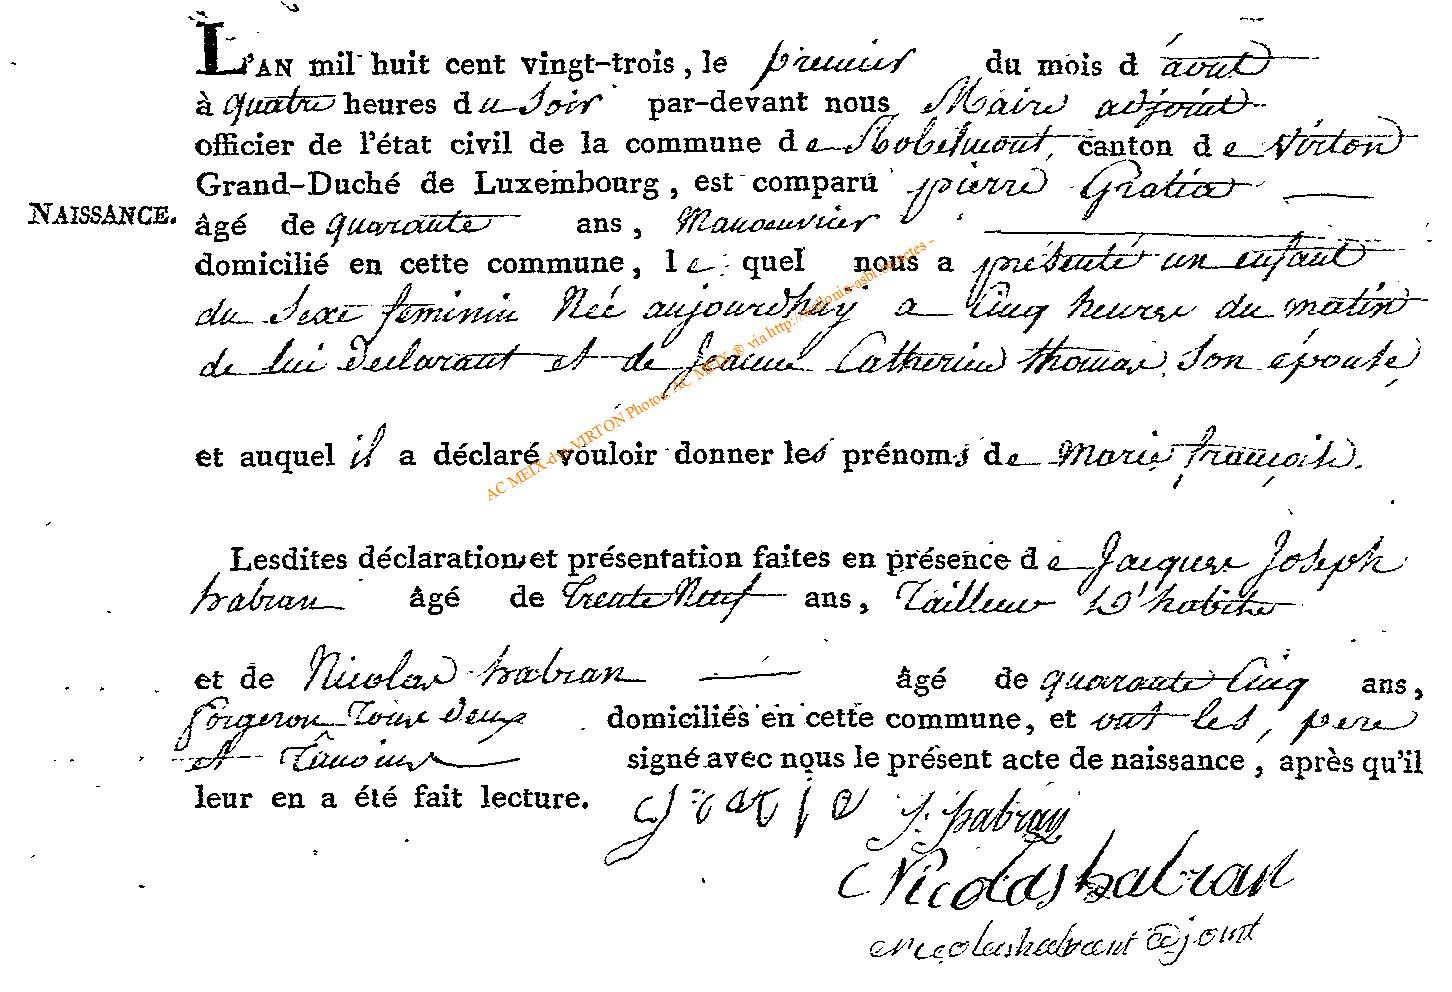 L'AN mil huit cent vingt-trois, le premier du mois d'août
à quatre heures du Soir par-devant nous Maire adjoint
officier de l'état civil de la commune de Robelmont, canton de Virton
Grand-Duché de Luxembourg, est comparu pierre Gratia
NAISSANCE.
âgé de quarante ans, Manoeuvrier
domicilié en cette commune, le quel nous a présenté un enfant
du Sexe feminin Née aujourdhuy a Cinq heures du matin
de lui Declarant et de Jeanne Catherine thomas Son épouse
et auquel il a déclaré vouloir donner les prénoms de Marie françoise.
Lesdites déclaration et présentation faites en présence de Jacques Joseph
habran âgé de Trente Neuf ans, Tailleur D'habits
et de Nicolas habran âgé de quarante Cinq ans,
forgeron Tous Deux domiciliés en cette commune, et ont les, pere
et Témoins signé avec nous le présent acte de naissance, après qu'il
leur en a été fait lecture. Gratia J: habran
Nicolas habran
nicolas habrant adjoint
AC MEIX-dvt-VIRTON Photos: AC MEIX ® via http://